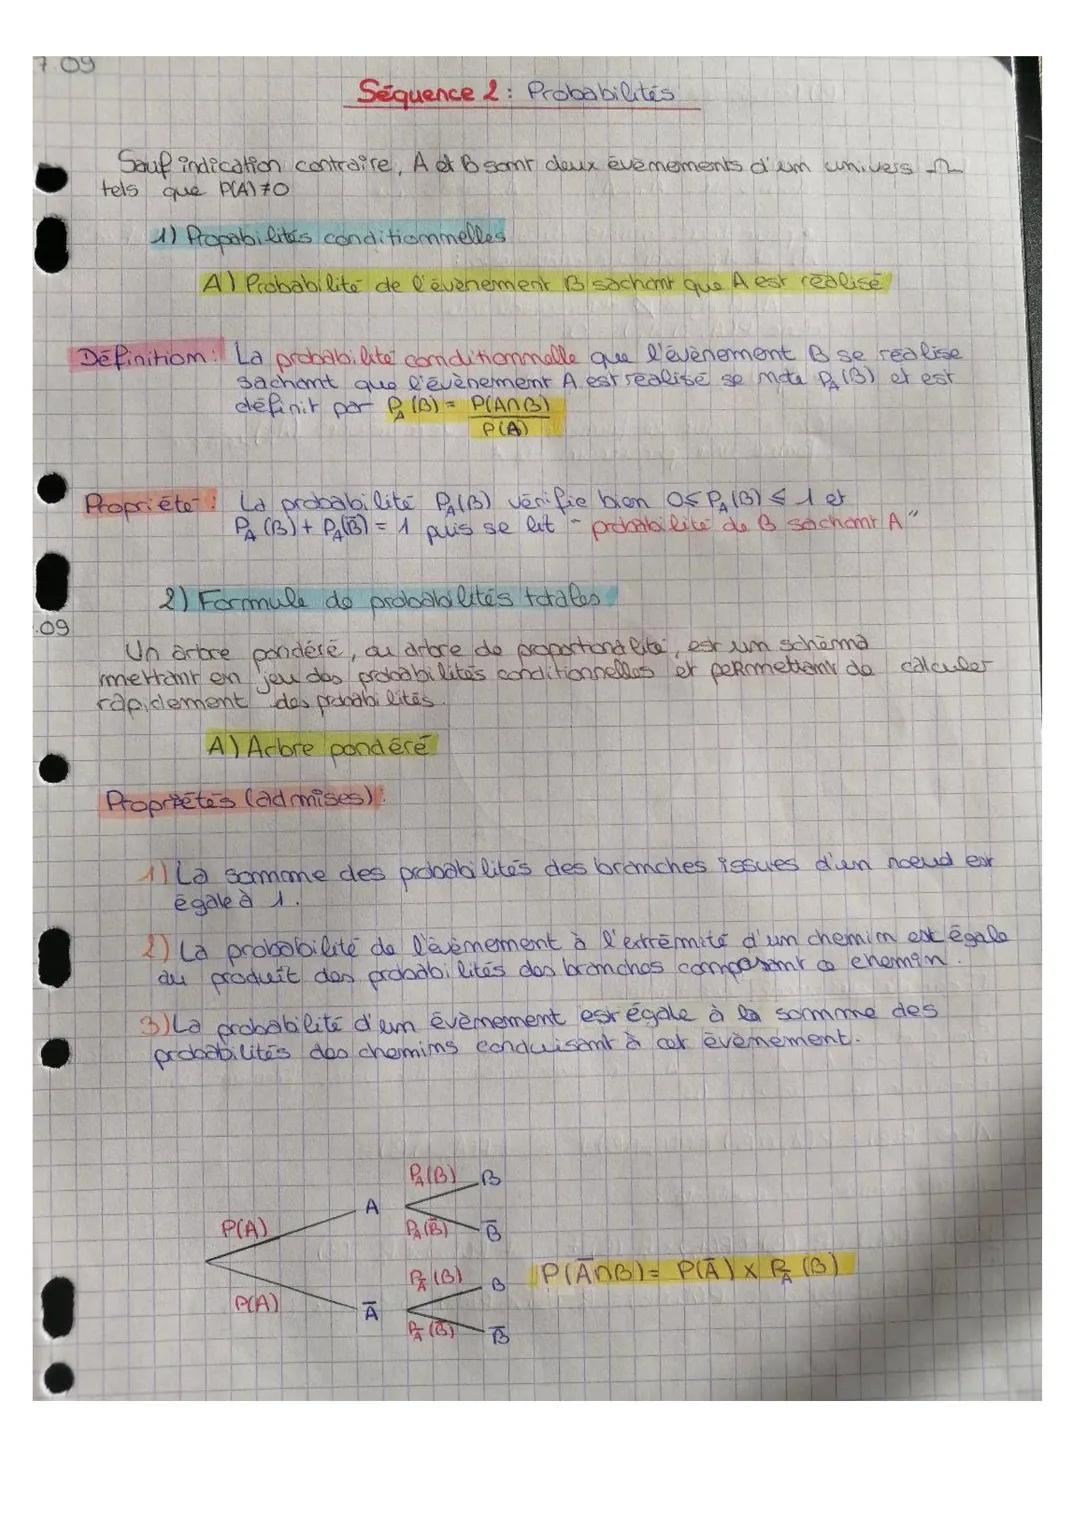 7.09
Séquence 2 : Probabilités
Sauf indication contraire, A et B sont deux évènements d'un univers Ω
tels que P(A)≠0
1) Propabilités conditionnelles
A) Probabilité de l'évènement B sachant que A est réalisé
Définition : La probabilité conditionnelle que l'évènement B se réalise
sachant que l'évènement A est réalisé se note P_A(B) et est
définit par P_A(B) = P(A∩B)
P(A)
Propriété : La probabilité P_A(B) vérifie bien 0≤P_A(B)≤1 et
P_A(B) + P_A(B̅) = 1 puis se lit "probabilité de B sachant A"
2) Formule de probabilités totales
.09
Un arbre pondéré, ou arbre de proportionalité, est un schéma
mettant en jeu des probabilités conditionnelles et permettant de calculer
rapidement des probabilités.
A) Arbre pondéré
Propriétés (admises) :
1) La somme des probabilités des branches issues d'un noeud est
égale à 1.
2) La probabilité de l'évènement à l'extrémité d'un chemin est égale
au produit des probabilités des branches composant ce chemin.
3) La probabilité d'un évènement est égale à la somme des
probabilités des chemins conduisant à cet évènement.
P_A(B) B
P(A) A
P_A(B̅) B̅
P_A̅(B) B P(A̅∩B) = P(A̅) × P_A̅(B)
P(A) A̅
P_A̅(B̅) B̅